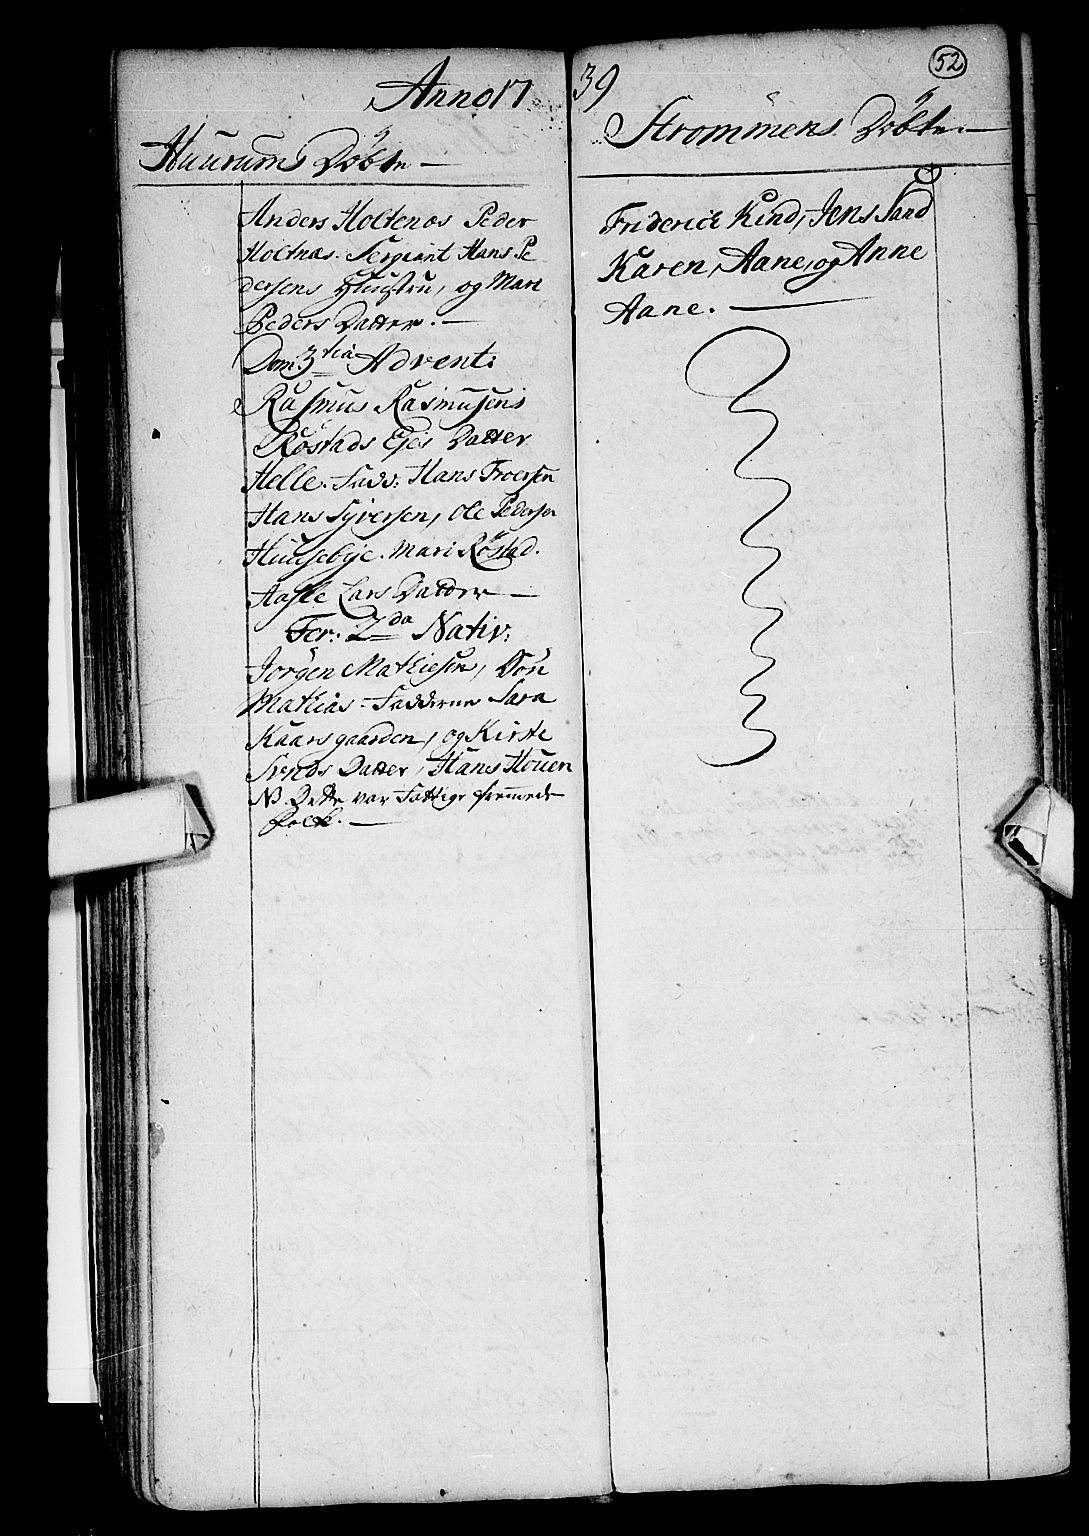 Anno 17 39
52
Haurums Döbte —
Anders Holtenos Peder
Holtnæs. Sergiant Hans Pe
dersens Huustru, og Mari
Peders Datter. —
Dom: 3tia Advent:
Rasmus Rasmusens
Röstads Ejes Datter
Helle. Fadd: Hans Troersen
Hans Syversen, Ole Pedersen
Huusebye. Mari Röstad.
Aasle Lars Datder —
Fer: 2da Nativ:
Jorgen Mathiesen, Sön
Mathias = Fadderne Sara
Kaarsgaarden, og Kirste
Svends Datter, Hans Houen
NB. Dette var Fattige fremmede
Folk. —
Strommens Döbte. —
Friderick Kind, Jens Sand
Karen, Aane, og Anne
Aane. —